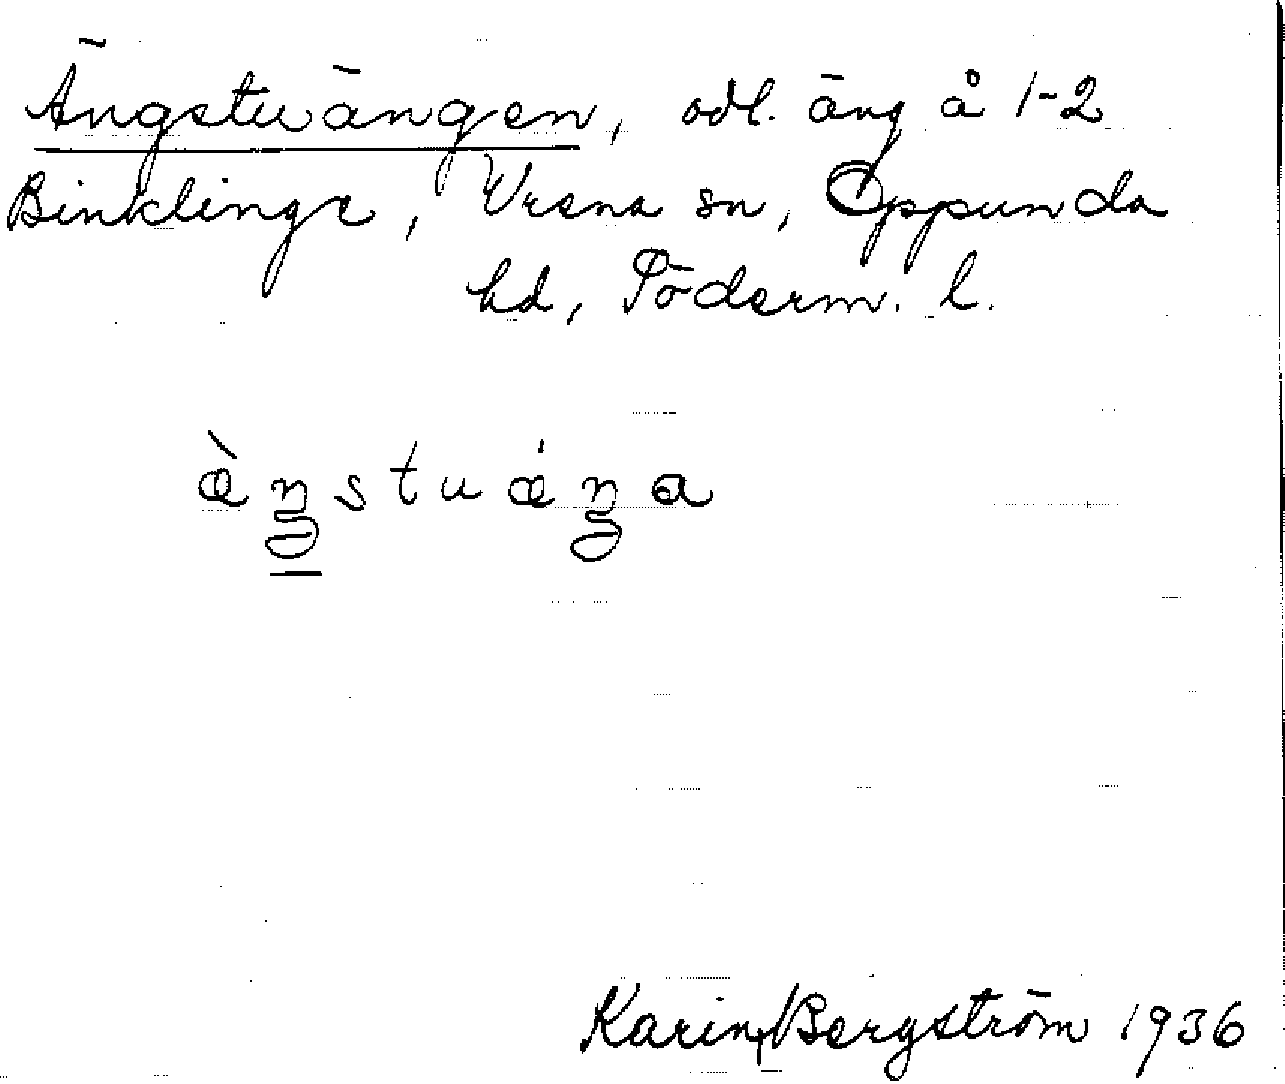 Ängstuängen, odl. äng å 1-2
Binklinge, Vrena sn, Oppunda
hd, Söderm. l.
æ̀ŋstuǽŋa
Karin Bergström 1936